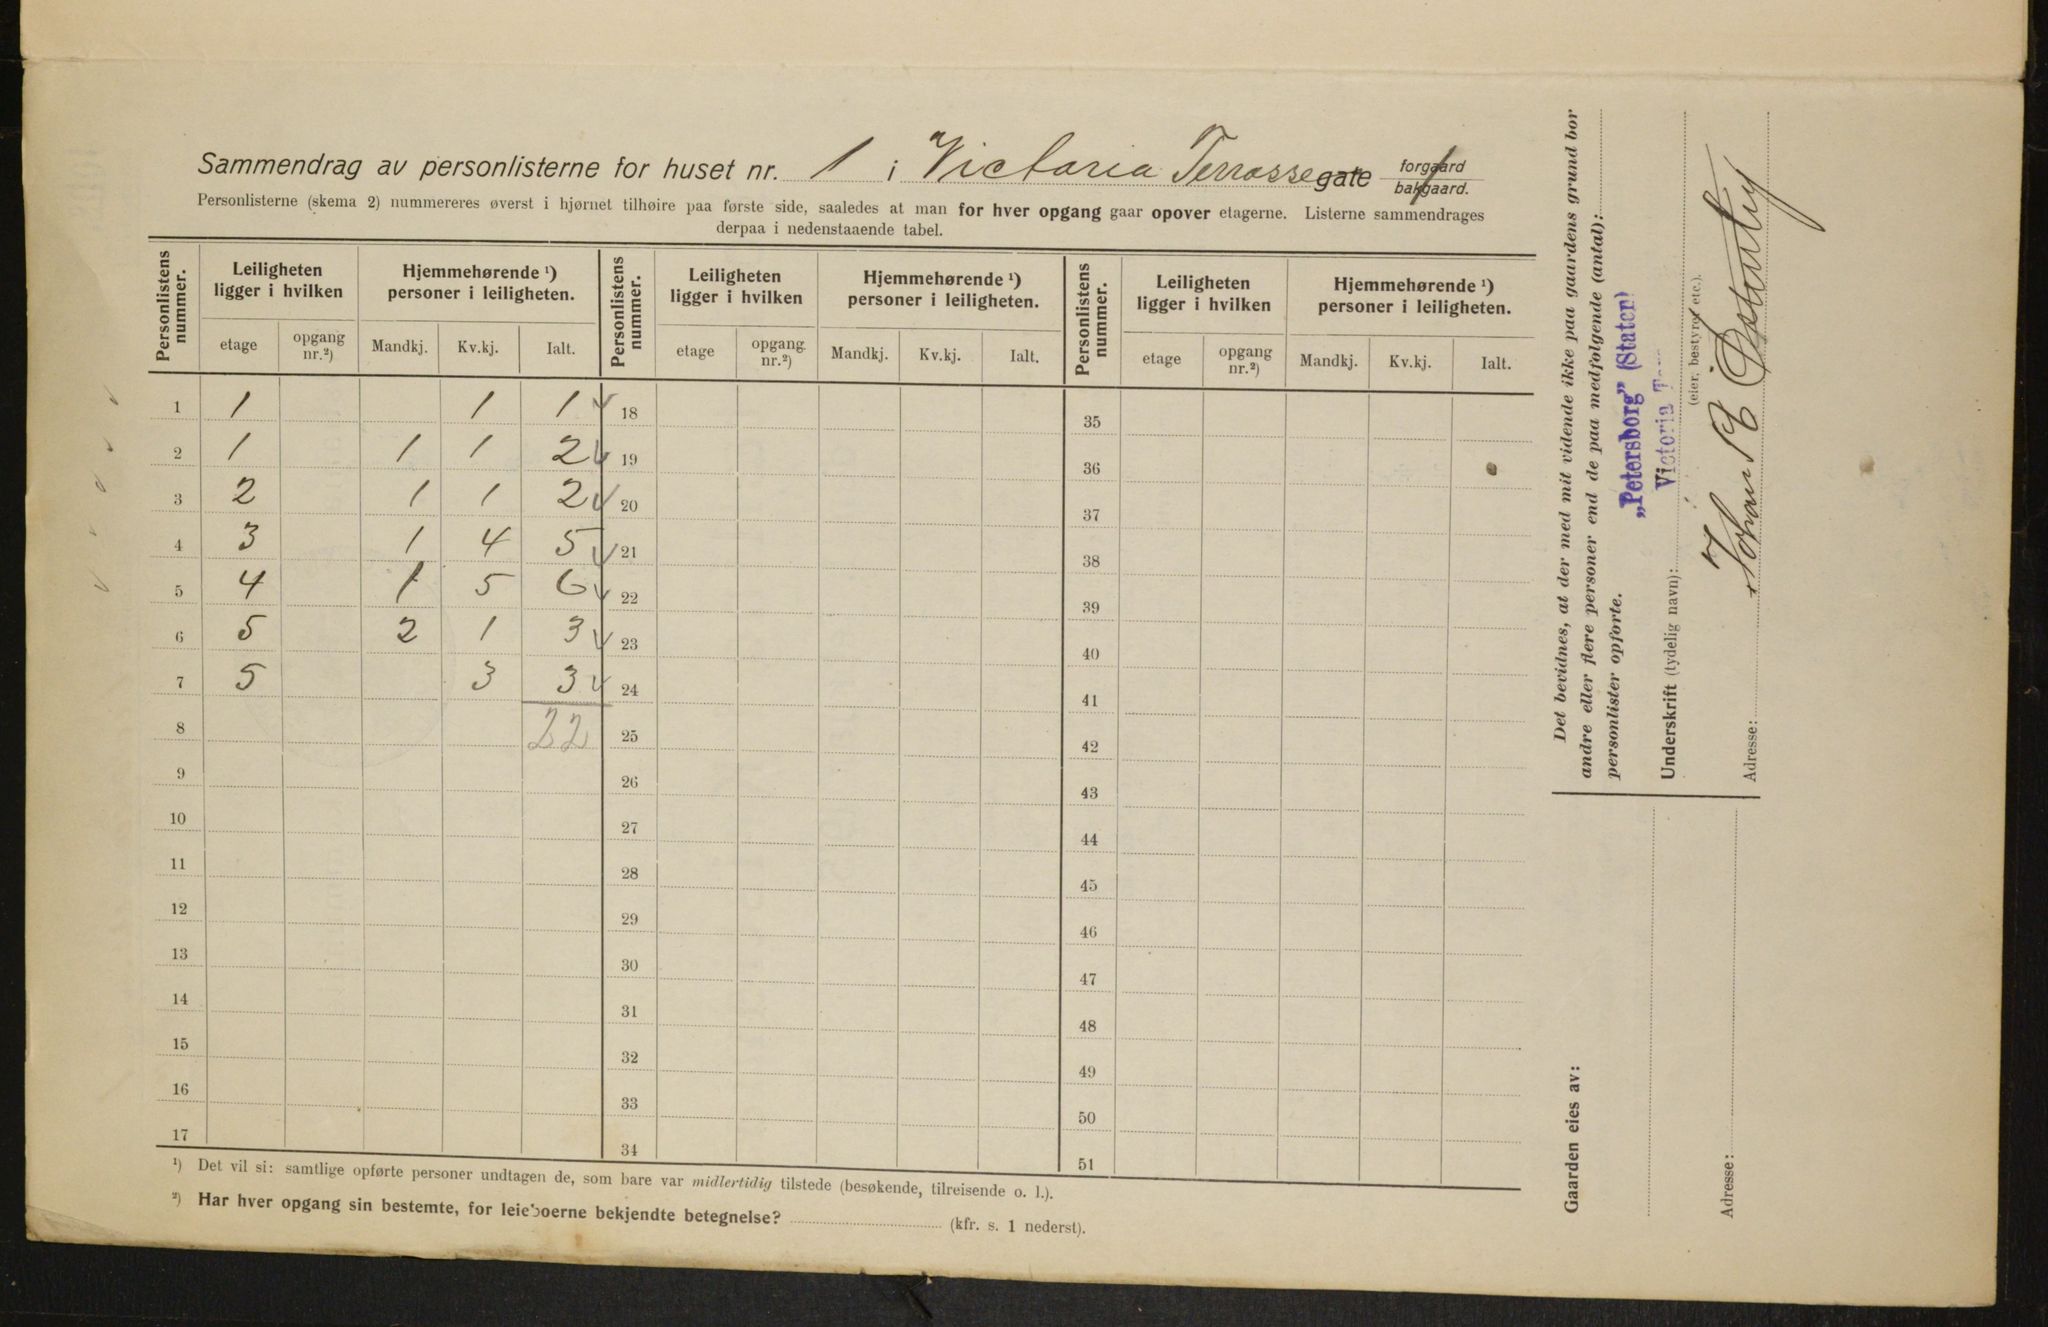 Sammendrag av personlisterne for huset nr. 1 i Victoria Terrasse gate forgaard bakgaard.
Personlisterne (skema 2) nummereres øverst i hjørnet tilhøire paa første side, saaledes at man for hver opgang gaar opover etagerne. Listerne sammendrages
derpaa i nedenstaaende tabel.
Personlistens nummer. Leiligheten ligger i hvilken Hjemmehørende ¹) personer i leiligheten. Personlistens nummer. Leiligheten ligger i hvilken Hjemmehørende ¹) personer i leiligheten. Personlistens nummer. Leiligheten ligger i hvilken Hjemmehørende ¹) personer i leiligheten.
etage opgang nr.²) Mandkj. Kv.kj. Ialt. etage opgang nr.²) Mandkj. Kv.kj. Ialt. etage opgang nr.²) Mandkj. Kv.kj. Ialt.
1 1 1 1 18 35
2 1 1 1 2 19 36
3 2 1 1 2 20 37
4 3 1 4 5 21 38
5 4 1 5 6 22 39
6 5 2 1 3 23 40
7 5 3 3 24 41
8 22 25 42
9 26 43
10 27 44
11 28 45
12 29 46
13 30 47
14 31 48
15 32 49
16 33 50
17 34 51
¹) Det vil si: samtlige opførte personer undtagen de, som bare var midlertidig tilstede (besøkende, tilreisende o. l.).
²) Har hver opgang sin bestemte, for leieboerne bekjendte betegnelse? (kfr. s. 1 nederst).
Det bevidnes, at der med mit vidende ikke paa gaardens grund bor
andre eller flere personer end de paa medfølgende (antal):
personlister opførte.
„Petersborg” (Staten)
Victoria
Underskrift (tydelig navn):
(eier, bestyrer etc.).
Johan
Adresse:
Gaarden eies av:
Adresse: